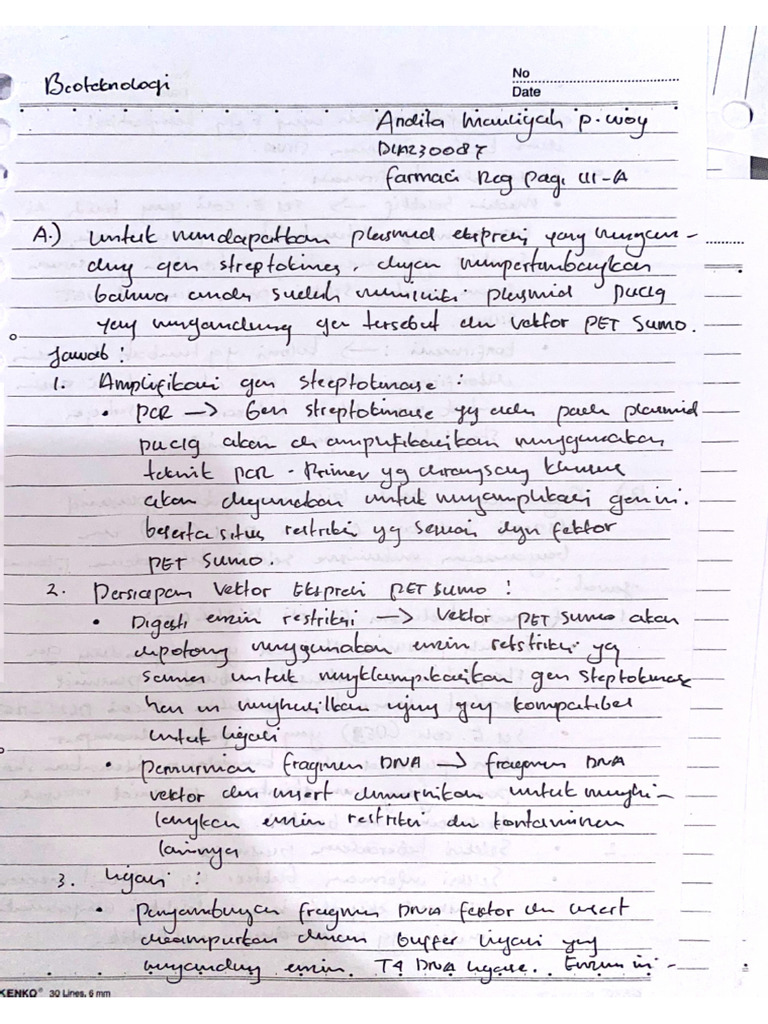 Bioteknologi
No
Date
Andita Mauliyah p. woy
D1A230087
farmasi Reg pagi III-A
A.) untuk mendapatkan plasmid ekspresi yang mengan-
dung gen streptokinase, dengan mempertimbangkan
bahwa anda sudah memiliki plasmid puc19
yang mengandung gen tersebut dan vektor PET SUMO.
Jawab :
1. Amplifikasi gen streptokinase :
• PCR → Gen streptokinase yg ada pada plasmid
puc19 akan di amplifikasikan menggunakan
teknik PCR - Primer yg dirangsang khusus
akan digunakan untuk mengamplikasi gen ini.
beserta situs restriksi yg sesuai dgn fektor
PET SUMO.
2. Persiapan Vektor Ekspresi PET SUMO :
• Digesti enzim restriksi → Vektor PET SUMO akan
dipotong menggunakan enzim retstriksi yg
sama untuk mengklampikasikan gen steptokinase
han ini menghasilkan ujung yang kompatibel
untuk ligasi
• pemurnian fragmen DNA → fragmen DNA
vektor dan insert dimurnikan untuk menghi-
langkan enzim restriksi dan kontaminan
lainnya
3. Ligasi :
• penyambungan fragmen DNA fektor dan insert
dicampurkan dalam buffer ligasi yang
mengandung enzim T4 DNA ligase. Enzim ini -
KENKO® 30 Lines, 6 mm